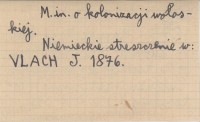 M.in. o kolonizacji wołos-
kiej.
Niemieckie streszczenie w:
VLACH J. 1876.